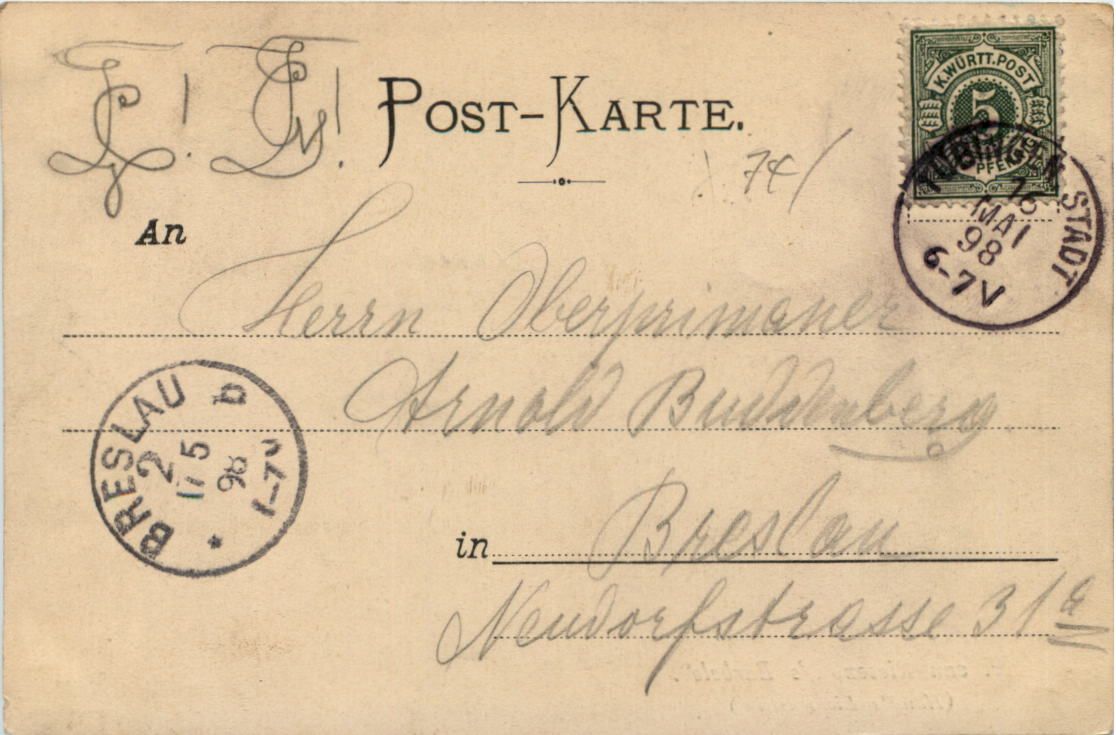 POST-KARTE.
K. WÜRTT. POST
5
PFENNIG
TÜBINGEN STADT
16
MAI
98
6-7V
74
An
Herrn Oberprimaner
Arnold Buddenberg.
BRESLAU
2 b
17 5
98
1-7V
*
in Breslau
Neudorfstrasse 31a